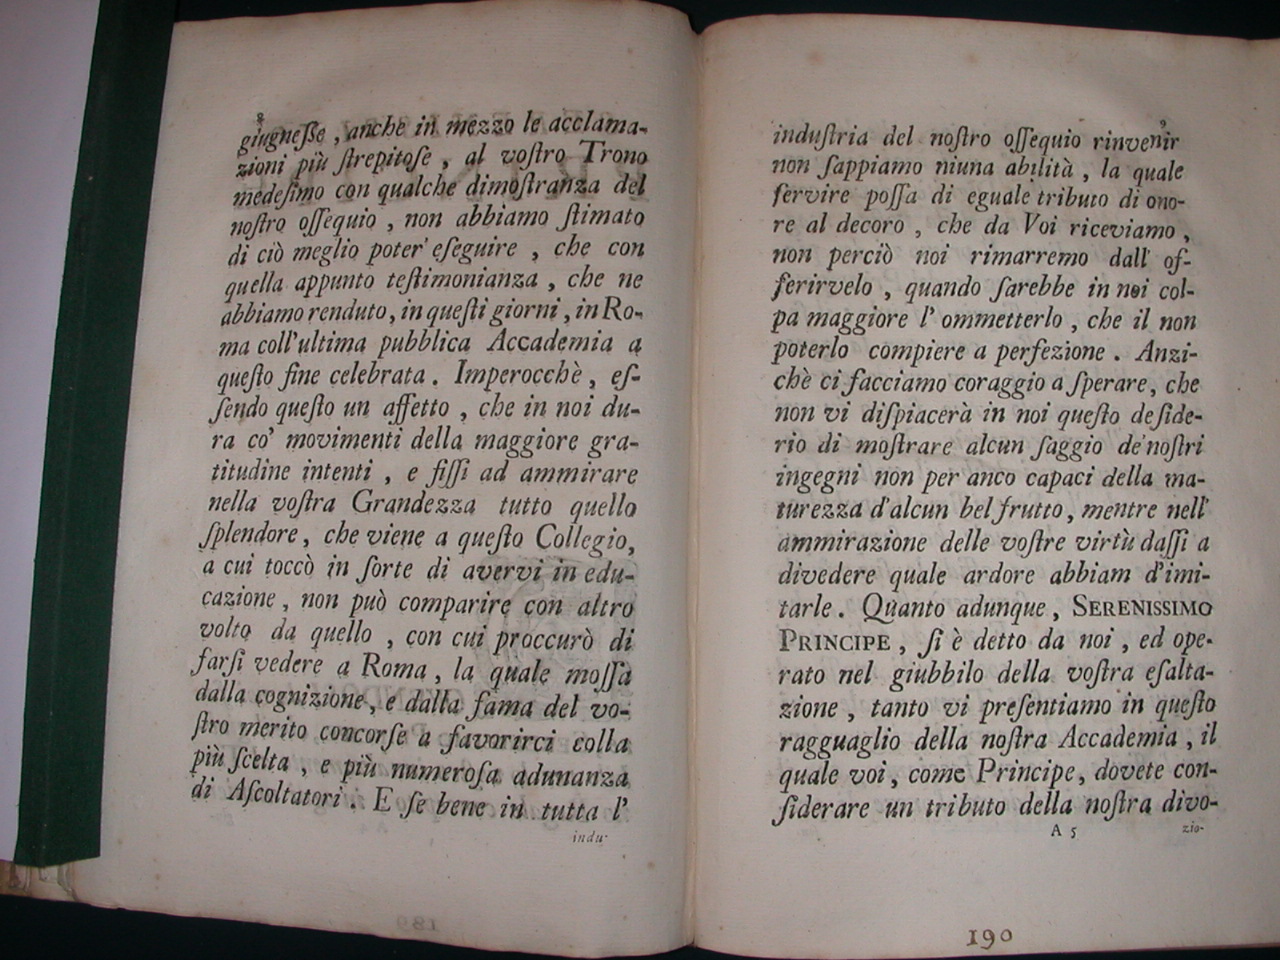 8
giugneſſe , anche in mezzo le acclama-
zioni più ſtrepitoſe , al voſtro Trono
medeſimo con qualche dimoſtranza del
noſtro oſſequio , non abbiamo ſtimato
di ciò meglio poter' eſeguire , che con
quella appunto teſtimonianza , che ne
abbiamo renduto, in queſti giorni , in Ro-
ma coll'ultima pubblica Accademia a
queſto fine celebrata . Imperocchè , eſ-
ſendo queſto un affetto , che in noi du-
ra co' movimenti della maggiore gra-
titudine intenti , e fiſſi ad ammirare
nella voſtra Grandezza tutto quello
ſplendore, che viene a queſto Collegio,
a cui toccò in ſorte di avervi in edu-
cazione, non può comparire con altro
volto da quello , con cui proccurò di
farſi vedere a Roma, la quale moſſa
dalla cognizione, e dalla fama del vo-
ſtro merito concorſe a favorirci colla
più ſcelta , e più numeroſa adunanza
di Aſcoltatori . E ſe bene in tutta l'
indu-
189
9
induſtria del noſtro oſſequio rinvenir
non ſappiamo niuna abilità , la quale
ſervire poſſa di eguale tributo di ono-
re al decoro , che da Voi riceviamo ,
non perciò noi rimarremo dall' of-
ferirvelo , quando ſarebbe in noi col-
pa maggiore l' ommetterlo , che il non
poterlo compiere a perfezione . Anzi-
chè ci facciamo coraggio a ſperare, che
non vi diſpiacerà in noi queſto deſide-
rio di moſtrare alcun ſaggio de' noſtri
ingegni non per anco capaci della ma-
turezza d'alcun bel frutto, mentre nell'
ammirazione delle voſtre virtù daſſi a
divedere quale ardore abbiam d'imi-
tarle . Quanto adunque , SERENISSIMO
PRINCIPE , ſi è detto da noi , ed ope-
rato nel giubbilo della voſtra eſalta-
zione , tanto vi preſentiamo in queſto
ragguaglio della noſtra Accademia , il
quale voi, come Principe, dovete con-
ſiderare un tributo della noſtra divo-
A 5 zio-
190